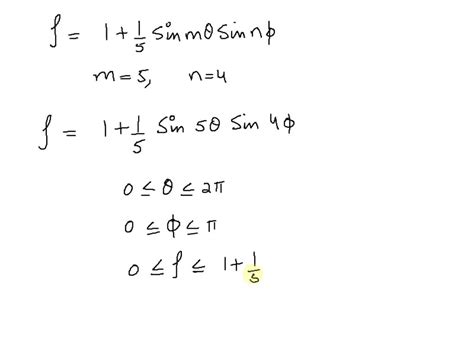 ρ = 1 + 1/5 sin mθ sin nφ
m = 5, n = 4
ρ = 1 + 1/5 sin 5θ sin 4φ
0 ≤ θ ≤ 2π
0 ≤ φ ≤ π
0 ≤ ρ ≤ 1 + 1/5